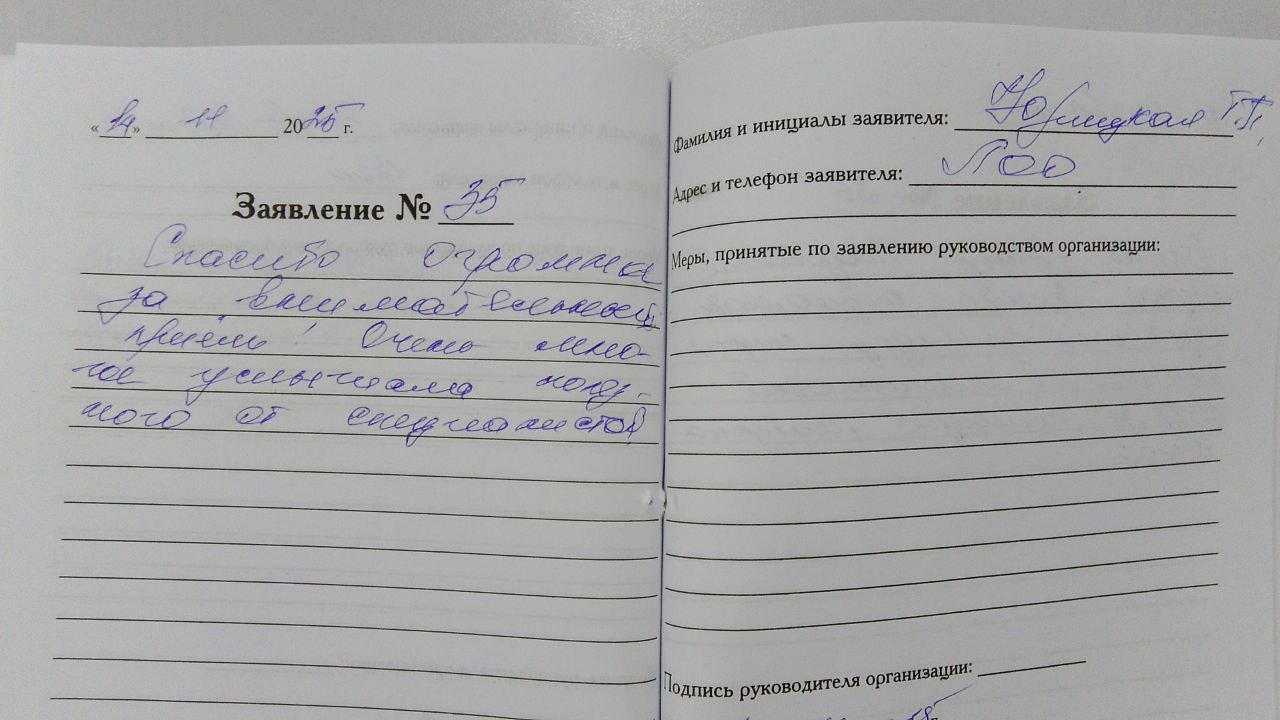 «14» 11 2025 г.
Заявление № 35
Спасибо огромное
за внимательный
приём! Очень мно-
гое услышала нуж-
ного от специалистов
Фамилия и инициалы заявителя: Т.П.
Адрес и телефон заявителя: Лоо
Меры, принятые по заявлению руководством организации:
Подпись руководителя организации: